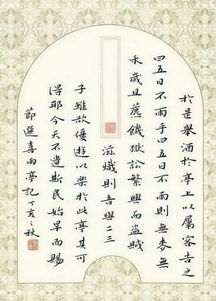 於是舉酒於亭上以屬客告之
曰五日不雨乎曰五日不雨則無麥無
禾歲且薦饑獄訟繁興而盜賊
滋熾則吾與二三
子雖欲優遊以樂於此亭其可
得耶今天不遺斯民始旱而賜
節選喜雨亭記丁亥之秋